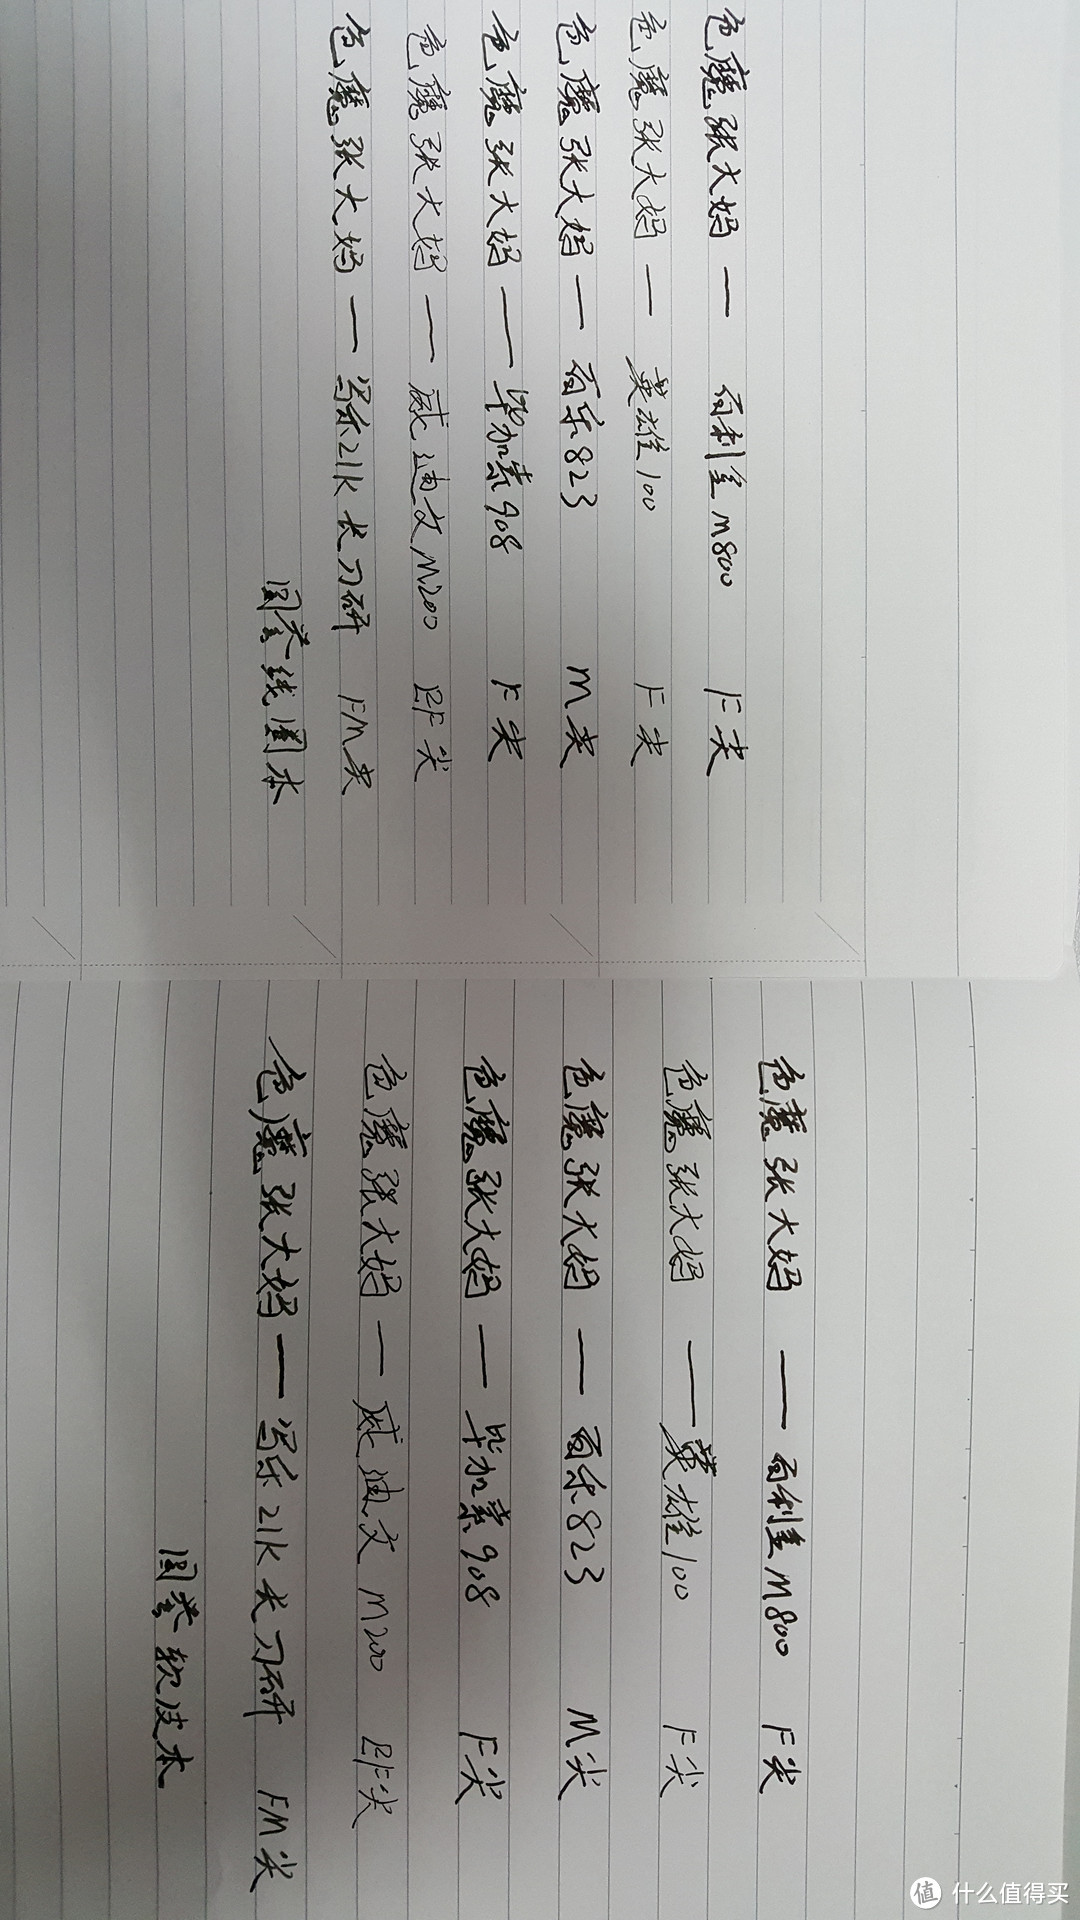 色魔张大妈 — 百利金M800 F尖
色魔张大妈 — 英雄100 F尖
色魔张大妈 — 百乐823 M尖
色魔张大妈 — 毕加索908 F尖
色魔张大妈 — 威迪文M200 EF尖
色魔张大妈 — 写乐21k长刀研 FM尖
国誉线圈本
色魔张大妈 — 百利金M800 F尖
色魔张大妈 — 英雄100 F尖
色魔张大妈 — 百乐823 M尖
色魔张大妈 — 毕加索908 F尖
色魔张大妈 — 威迪文M200 EF尖
色魔张大妈 — 写乐21k长刀研 FM尖
国誉软皮本
值 什么值得买